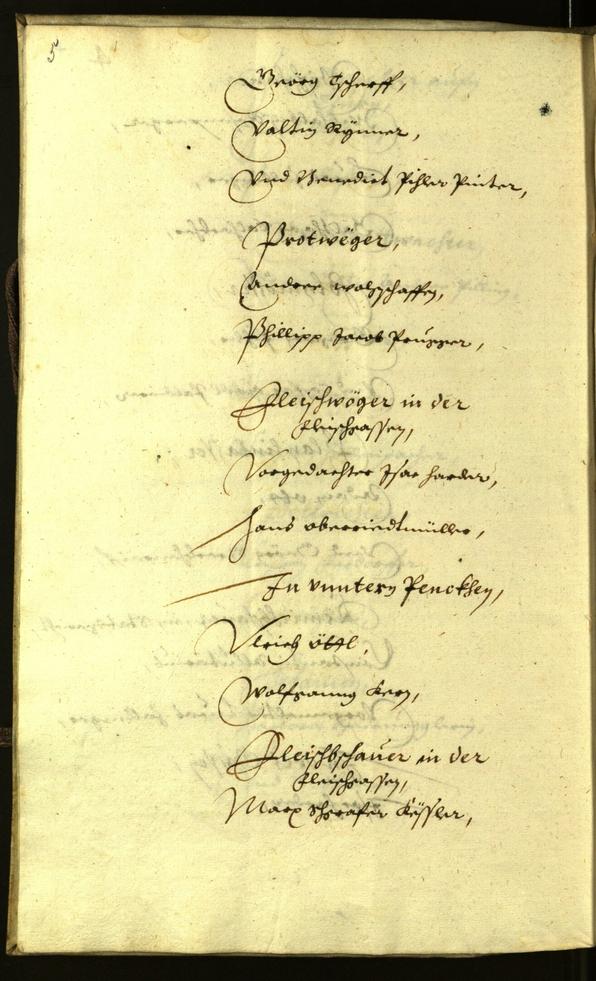 5
Geörg Tscherff,
Valtin Rÿnner,
Vnd Benedict Pihler Pinter,
Protweger,
Andree wolgschaffen,
Phillipp Jacob Prugger,
Fleischwöger in der
fleischgassen,
Vorgedachter Isac harder,
Hans oberriedtmüller,
In vnntern Penckhen,
Vlrich öttl,
Wolfganng Kern,
Fleischbschauer in der
fleischgassen,
Marx Kössler,